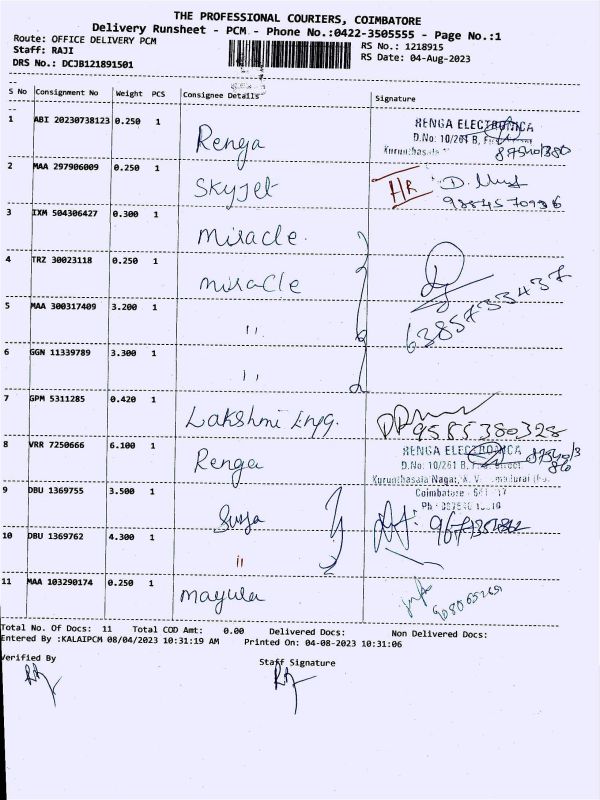 THE PROFESSIONAL COURIERS, COIMBATORE
Delivery Runsheet - PCM - Phone No.:0422-3505555 - Page No.:1
Route: OFFICE DELIVERY PCM
RS No.: 1218915
Staff: RAJI
RS Date: 04-Aug-2023
DRS No.: DCJB121891501
S No Consignment No Weight PCS Consignee Details Signature
1 ABI 20230738123 0.250 1 Renga RENGA ELECTRONICA
D.No: 10/261 B,
2 MAA 297906009 0.250 1 Skyjet HR
9884570936
3 IXM 504306427 0.300 1 Miracle
4 TRZ 30023118 0.250 1 Miracle
6385733437
5 MAA 300317409 3.200 1 "
6 GGN 11339789 3.300 1 "
7 GPM 5311285 0.420 1 Lakshmi Engg.
9585380328
8 VRR 7250666 6.100 1 Renga RENGA ELECTRONICA
D.No: 10/261 B, Street
Kurunthasala Nagar, K. V
9 DBU 1369755 3.500 1 Surya Coimbatore
10 DBU 1369762 4.300 1 "
11 MAA 103290174 0.250 1 Mayura
Total No. Of Docs: 11 Total COD Amt: 0.00 Delivered Docs: Non Delivered Docs:
Entered By :KALAIPCM 08/04/2023 10:31:19 AM Printed On: 04-08-2023 10:31:06
Verified By Staff Signature